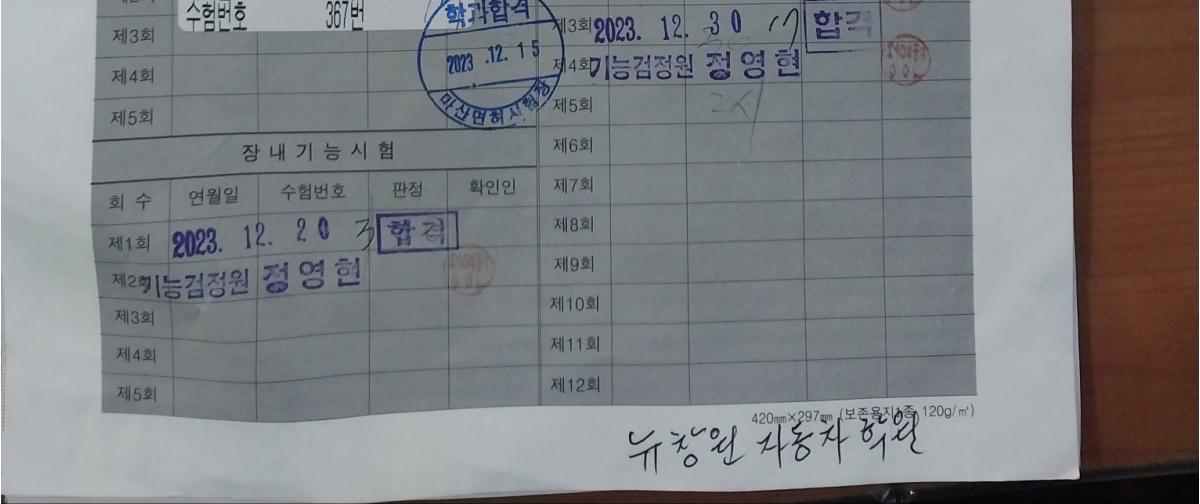 수험번호 367번
제3회
제4회
제5회
학과합격
2023 .12. 15
마산면허시험장
장내기능시험
회 수 연월일 수험번호 판정 확인인
제1회 2023. 12. 20 3 합격
제2회 기능검정원 정영현
제3회
제4회
제5회
제3회 2023. 12. 30 17 합격
제4회 기능검정원 정영현
제5회 2시
제6회
제7회
제8회
제9회
제10회
제11회
제12회
420㎜×297㎜ (보존용지1종 120g/㎡)
뉴창원 자동차 학원